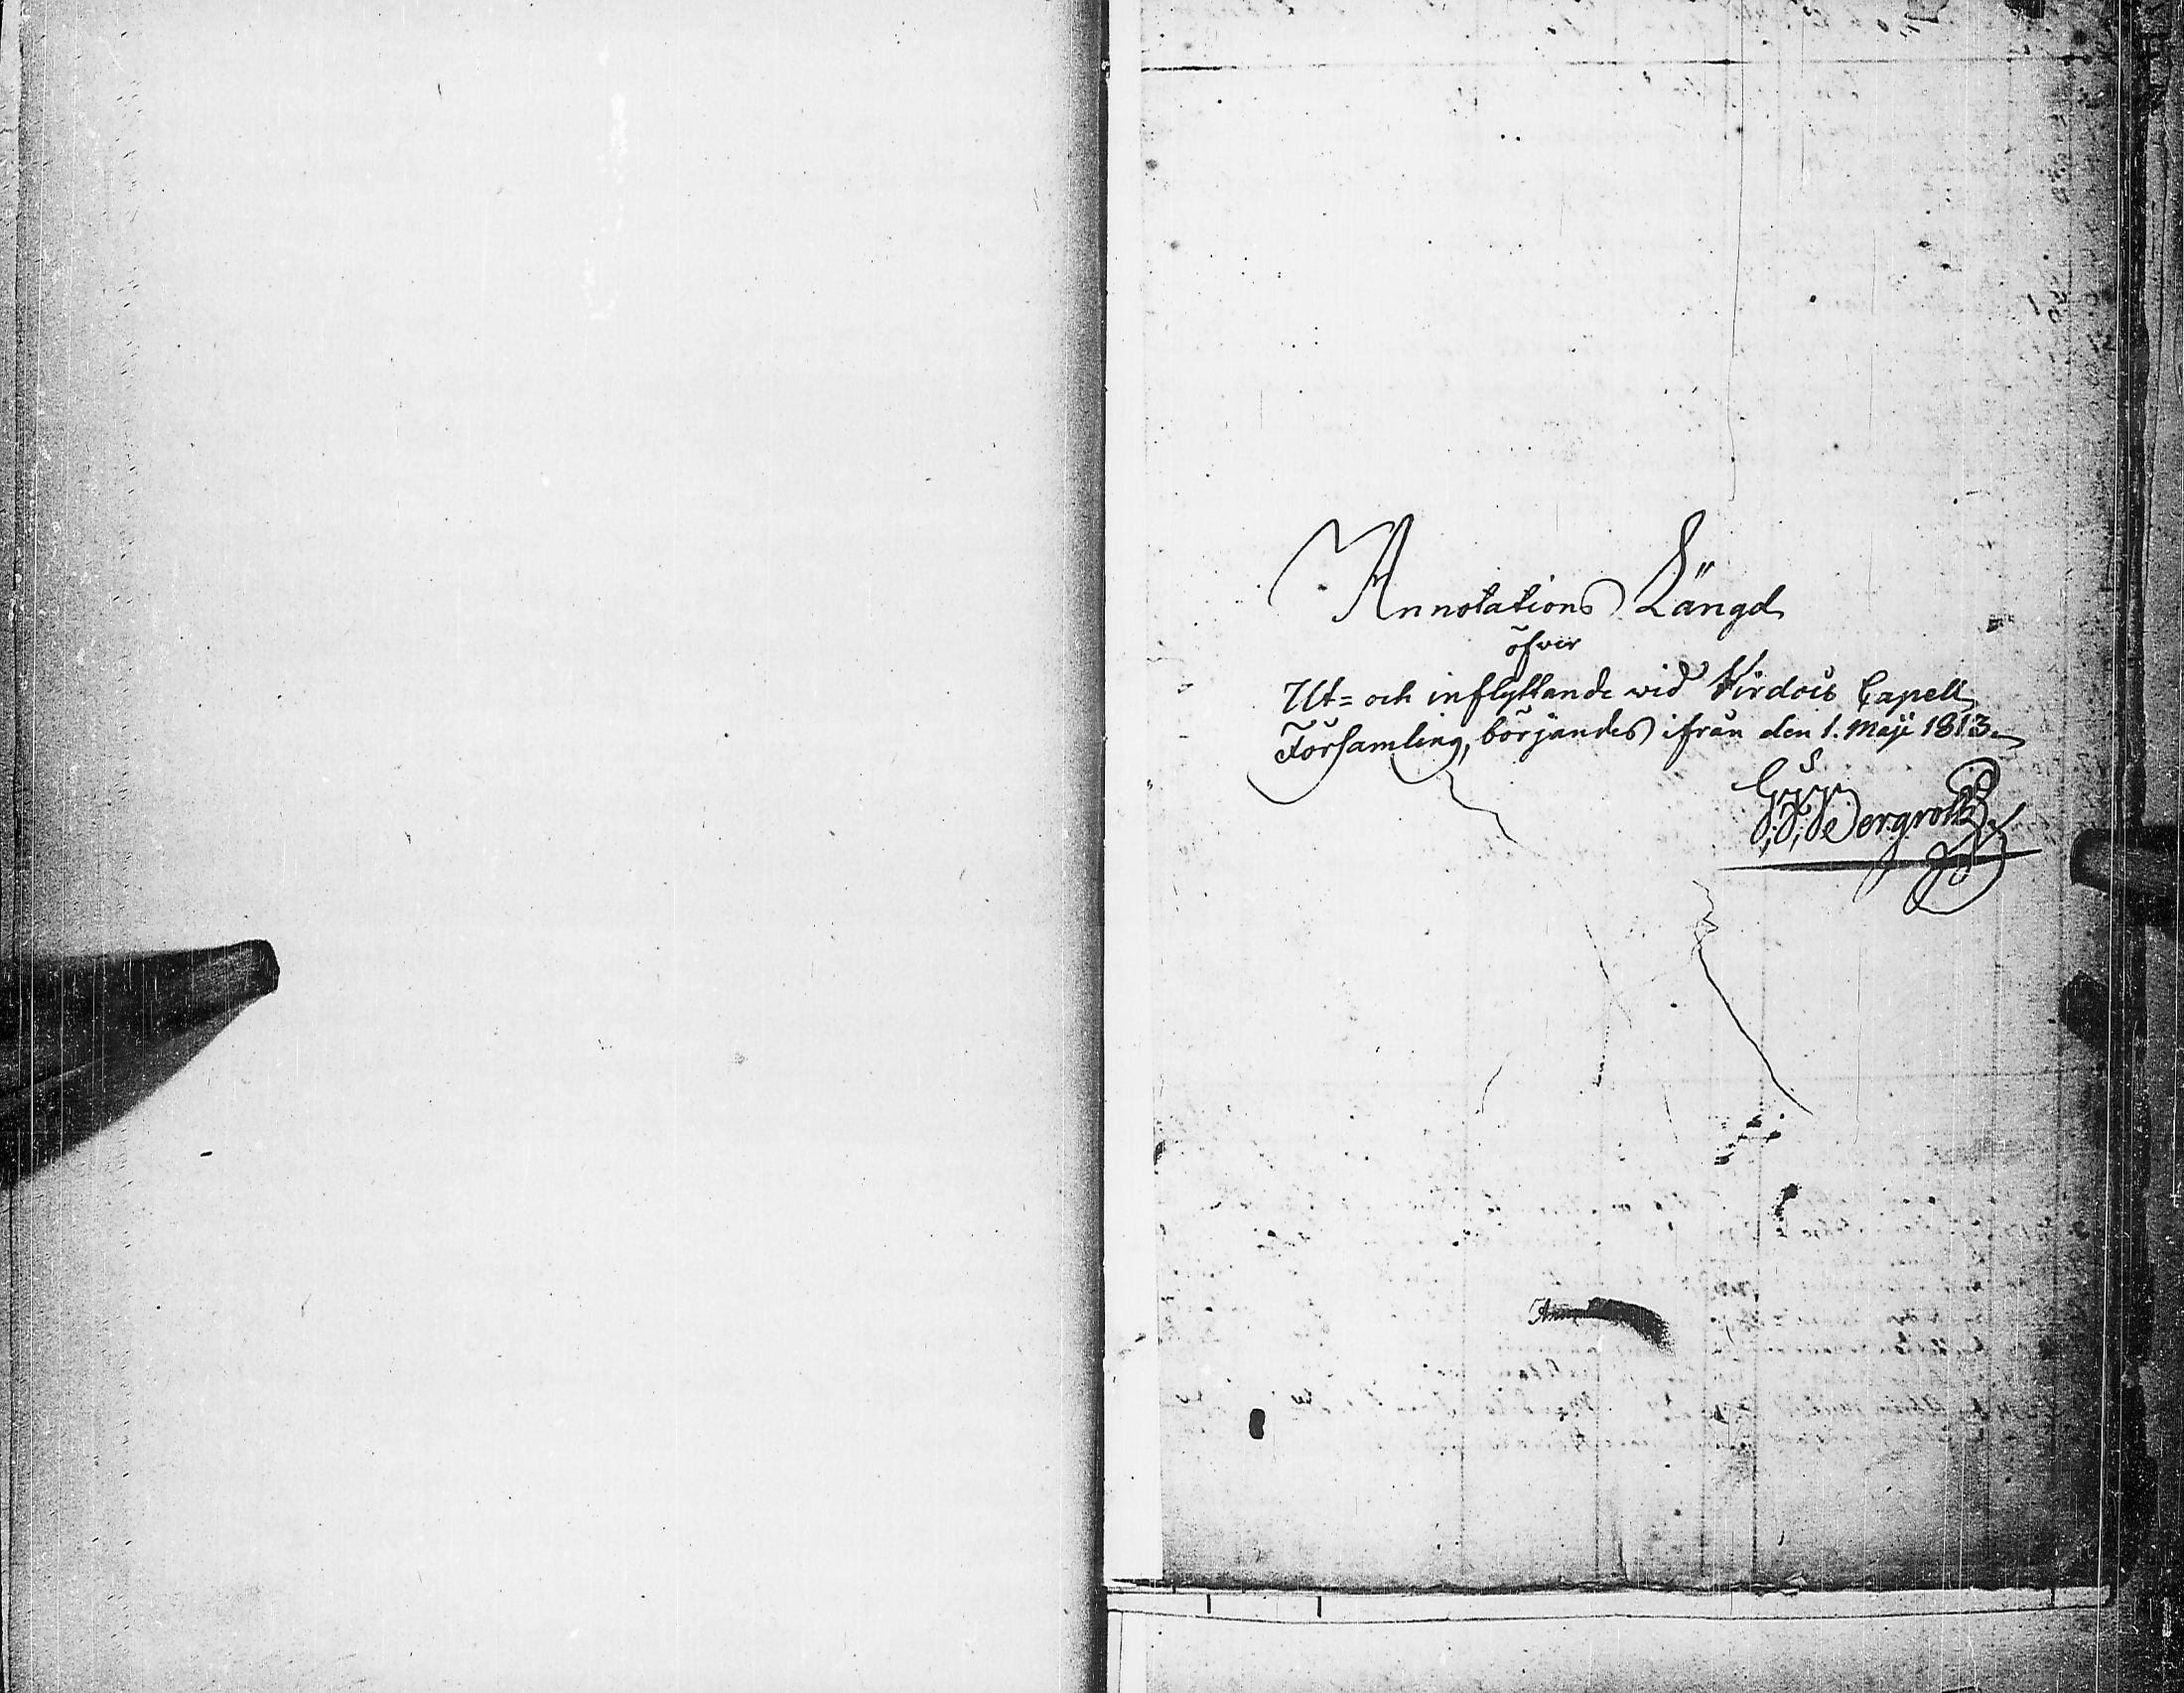 Annotations Längd
öfver
Ut= och inflyttande wid Virdois Capell
Församling, börjandes ifrån den 1. Maji 1813.
Bergroth